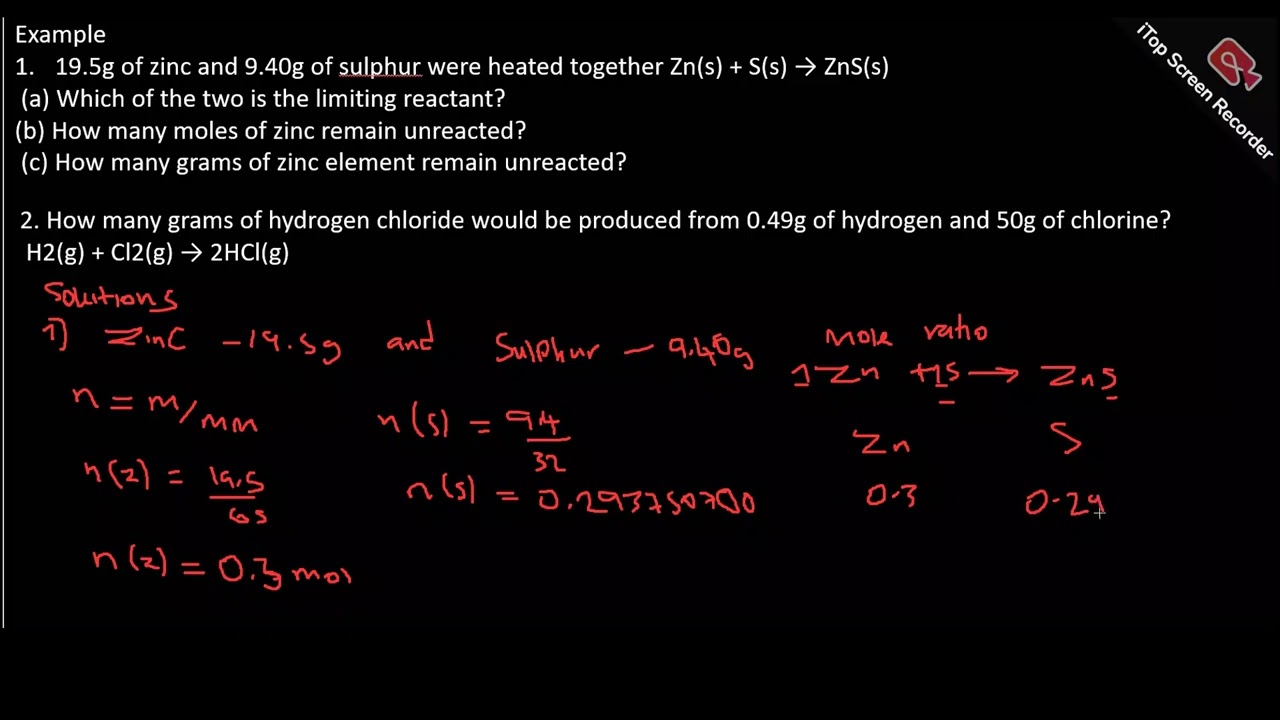 Example
1. 19.5g of zinc and 9.40g of sulphur were heated together Zn(s) + S(s) → ZnS(s)
(a) Which of the two is the limiting reactant?
(b) How many moles of zinc remain unreacted?
(c) How many grams of zinc element remain unreacted?
2. How many grams of hydrogen chloride would be produced from 0.49g of hydrogen and 50g of chlorine?
H2(g) + Cl2(g) → 2HCl(g)
iTop Screen Recorder
Solutions
1) Zinc - 19.5g and Sulphur - 9.40g
mole ratio
1Zn + 1S → ZnS
n = m/mm
n(s) = 94/32
Zn S
n(z) = 19.5/65
n(s) = 0.293750700
0.3 0.29
n(z) = 0.3 mol